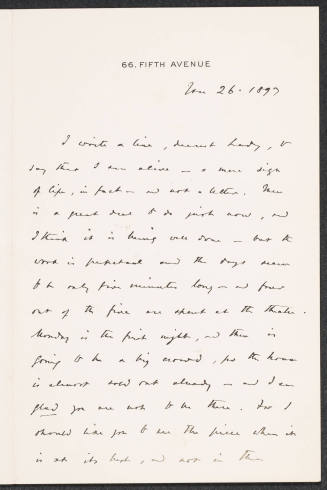 66. FIFTH AVENUE
Nov 26. 1897
I write a line, dearest Lady, to
say that I am alive – a mere sign
of life, in fact – and not a letter. There
is a great deal to do just now, and
I think it is being well done – but the
work is perpetual and the days seem
to be only five minutes long – and four
out of the five are spent at the theatre.
Monday is the first night, and there is
going to be a big crowd, for the house
is almost sold out already – and I am
glad you are not to be there. For I
should like you to see the piece when it
is at its best, and not in the